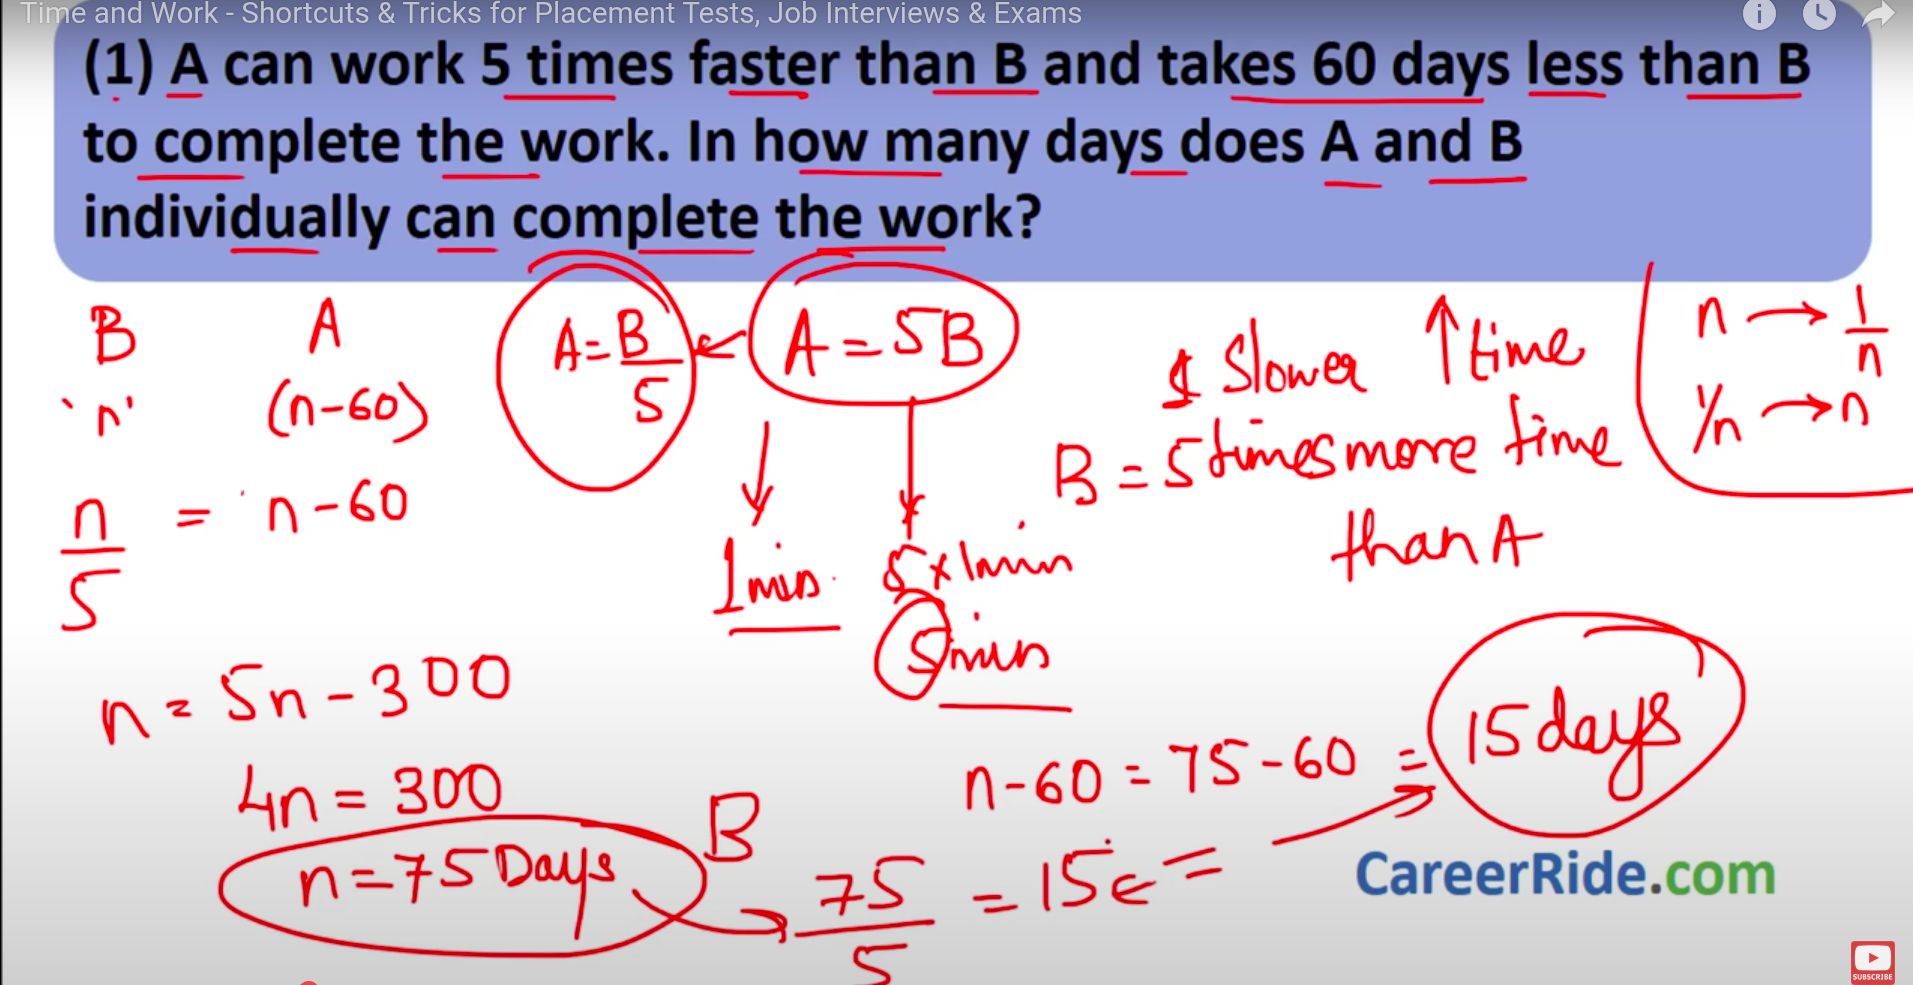 Time and Work - Shortcuts & Tricks for Placement Tests, Job Interviews & Exams
(1) A can work 5 times faster than B and takes 60 days less than B
to complete the work. In how many days does A and B
individually can complete the work?
B A
'n' (n-60)
n/5 = n-60
n = 5n-300
4n = 300
n=75 Days B
75/5 = 15
A=B/5
A=5B
1 min.
5x1min
5min
Slower ↑time
B = 5 times more time
than A
n → 1/n
1/n → n
n-60 = 75-60 = 15 days
CareerRide.com
SUBSCRIBE